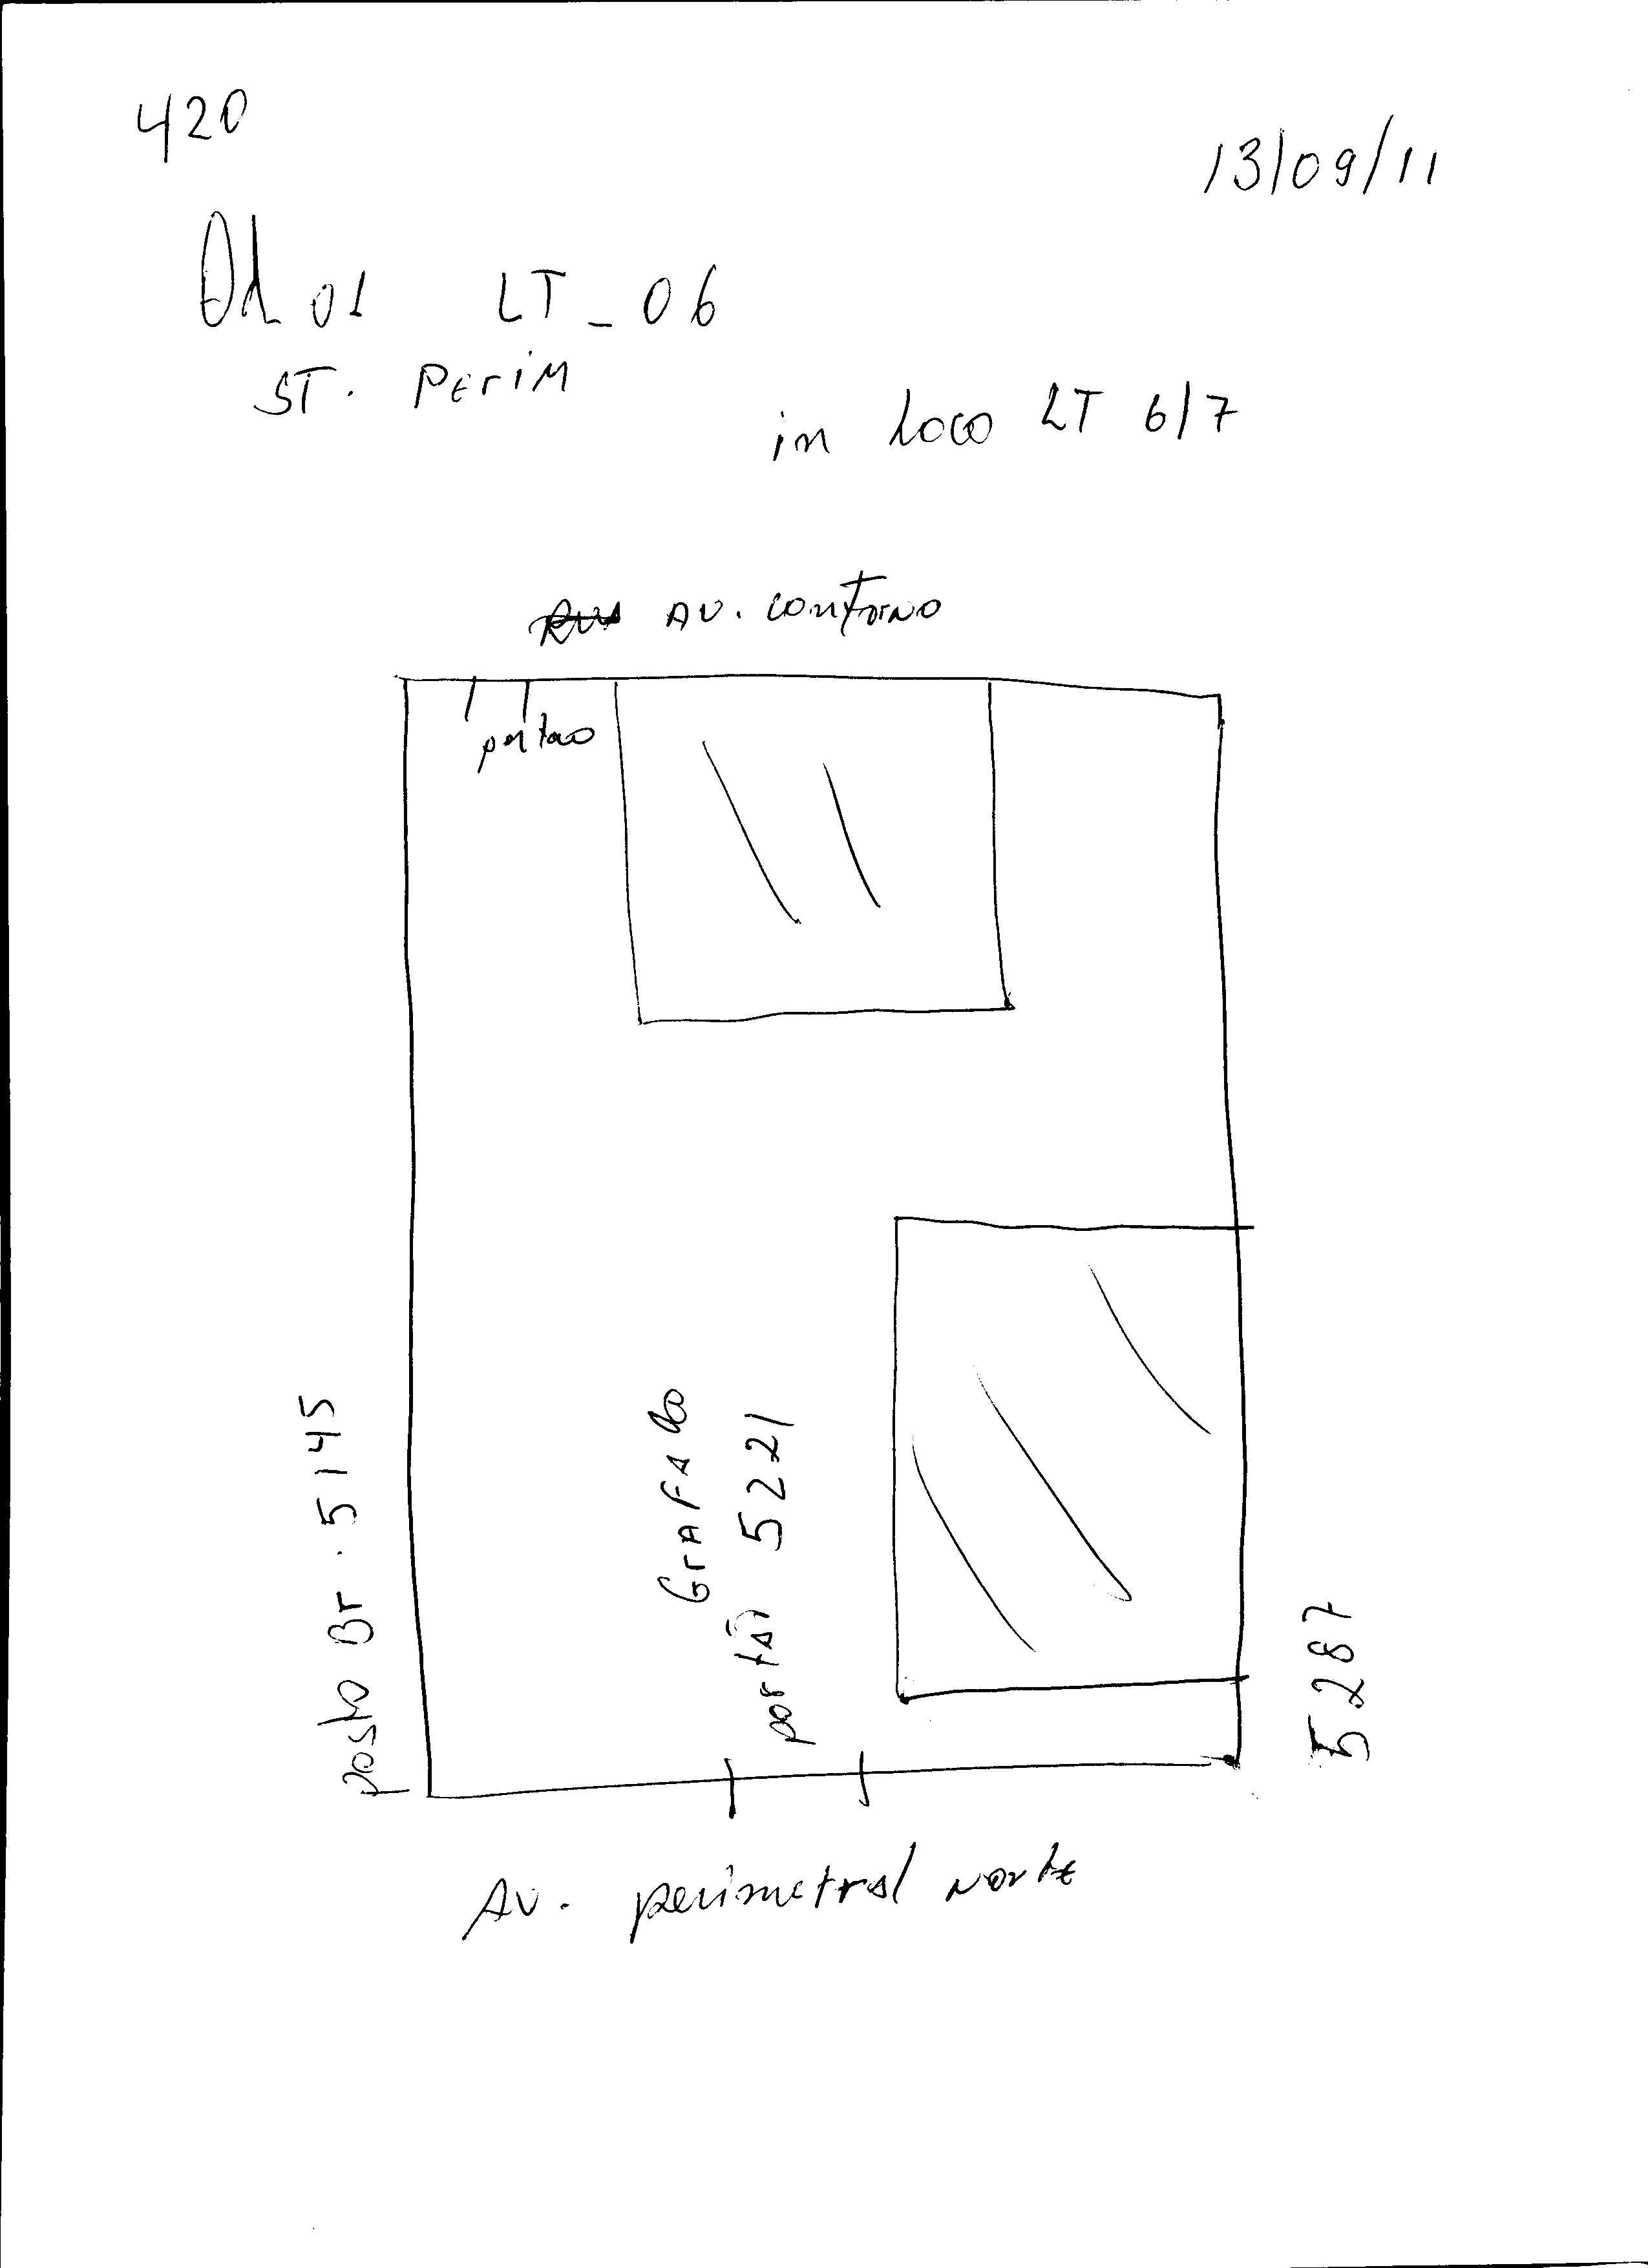 420
13/09/11
Qd 01 LT_06
ST. PEriM
in Loco LT 6/7
Rua AV. contorno
portao
posto Br. 5145
GrAFAdo
portão 5221
5287
AV. perimetral norte